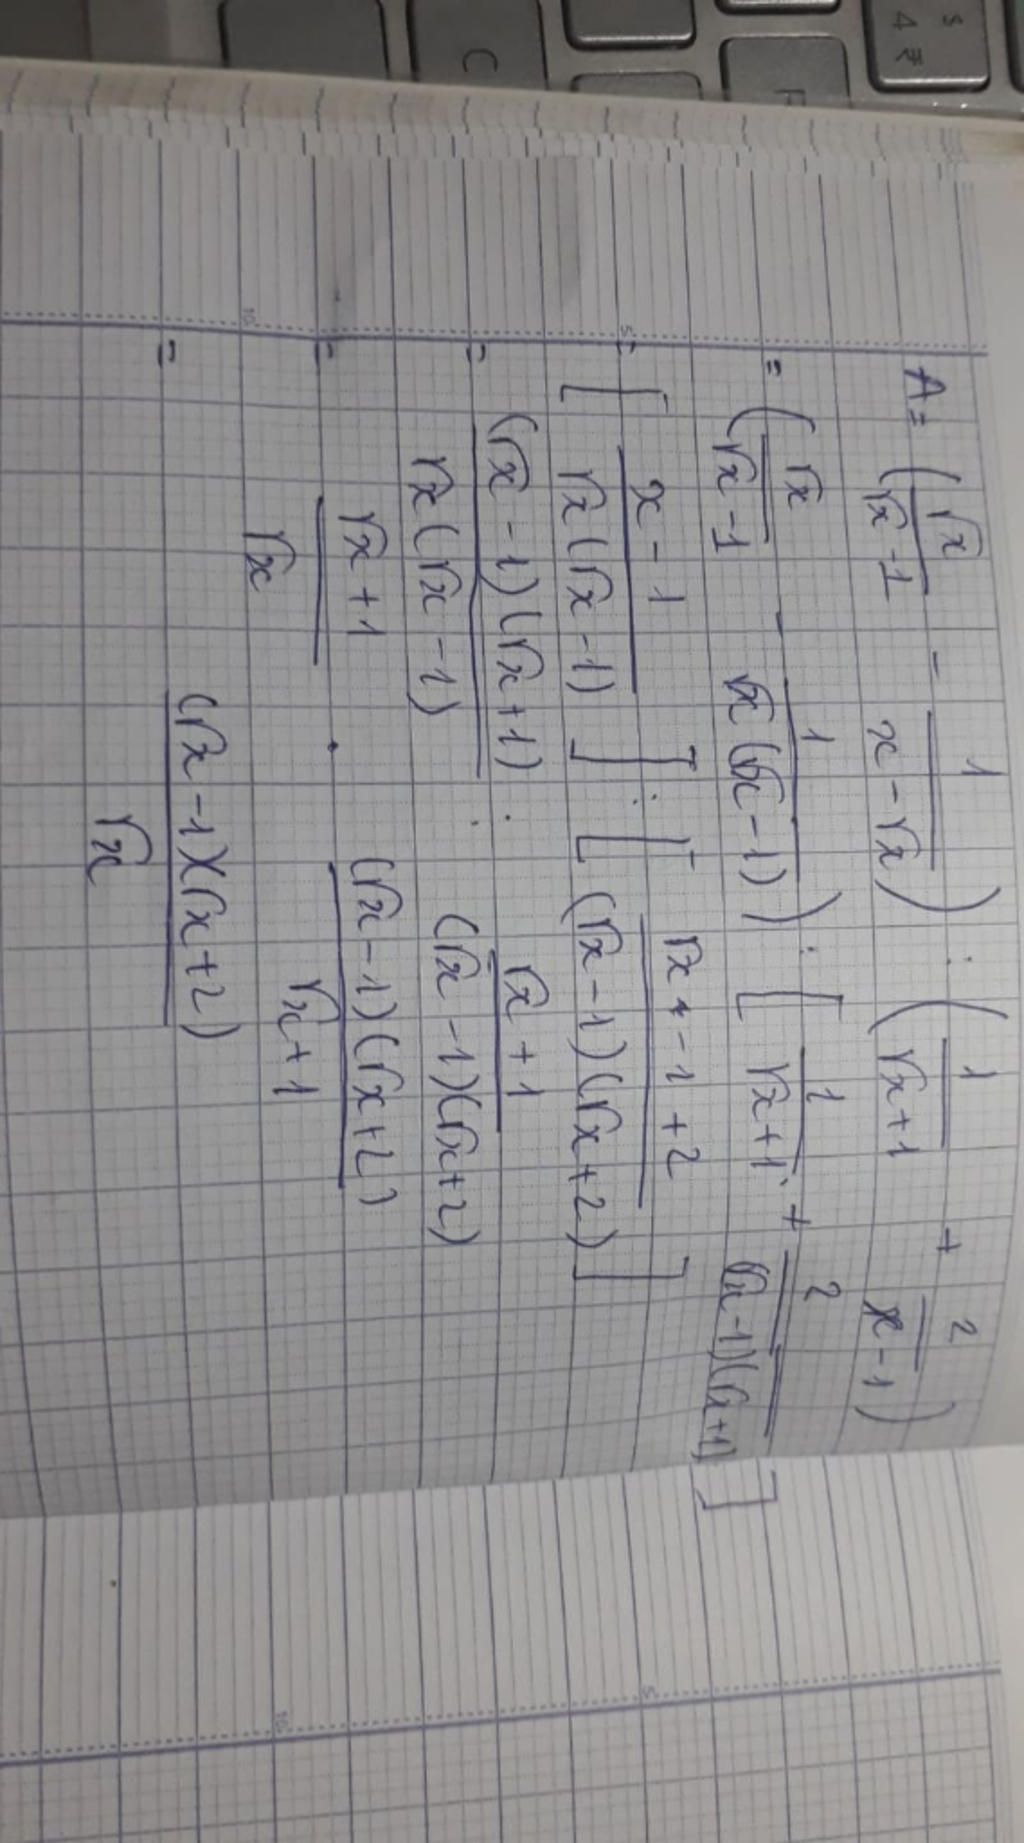 A = (√x/(√x - 1) - 1/(x - √x)) : (1/(√x + 1) + 2/(x - 1))
= (√x/(√x - 1) - 1/(√x(√x - 1))) : [1/(√x + 1) + 2/((√x - 1)(√x + 1))]
= [(x - 1)/(√x(√x - 1))] : [(√x - 1 + 2)/((√x - 1)(√x + 2))]
= ((√x - 1)(√x + 1))/(√x(√x - 1)) : (√x + 1)/((√x - 1)(√x + 2))
= (√x + 1)/√x . ((√x - 1)(√x + 2))/(√x + 1)
= ((√x - 1)(√x + 2))/√x
5
10
5
10
C
F
$
4 ₹